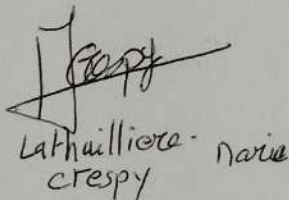 Crespy
Lathuilliere. Marie
crespy